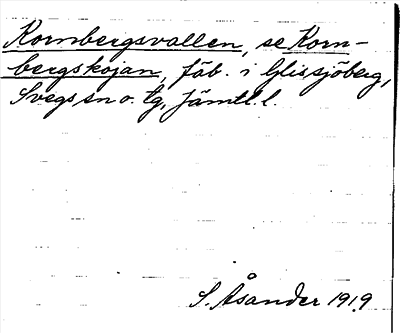 Kornbergsvallen, se Korn-
bergskojan, fäb. i Glissjöberg,
Svegs sn o. tg, Jämtl. l.
S. Åsander 1919